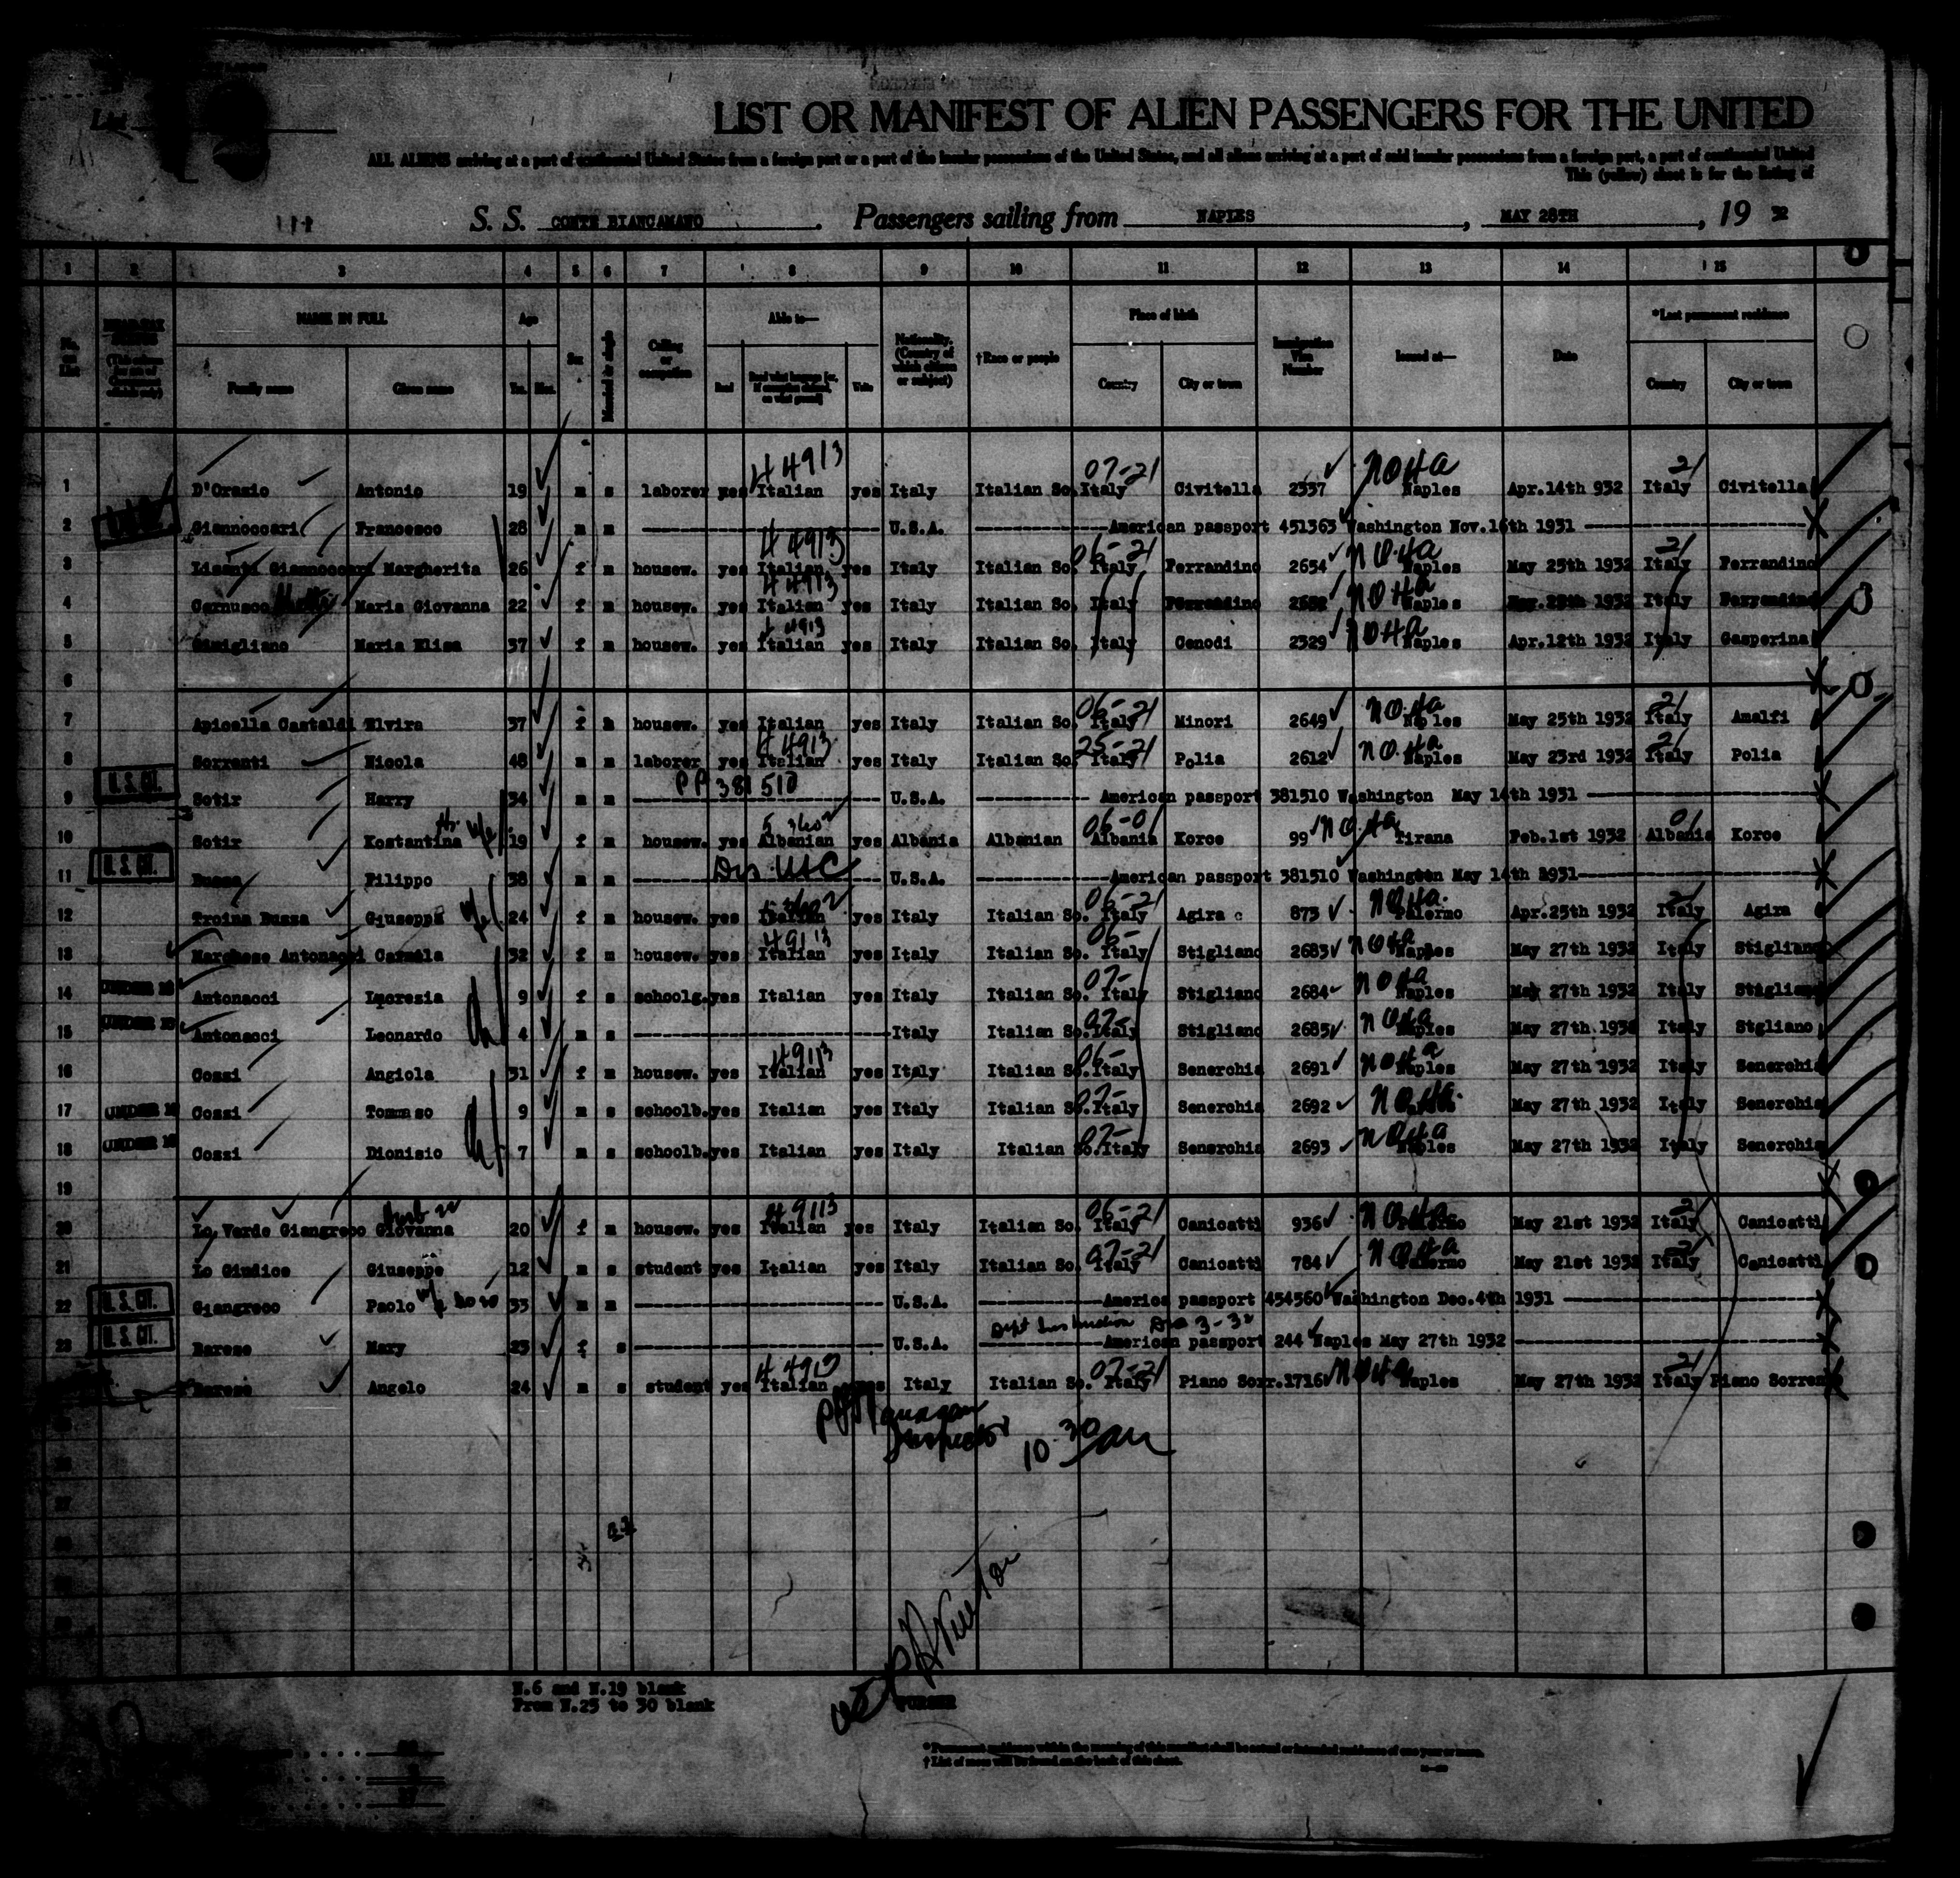 LIST OR MANIFEST OF ALIEN PASSENGERS FOR THE UNITED
ALL ALIENS arriving at a port of continental United States from a foreign port or a port of the insular possessions of the United States, and all aliens arriving at a port of said insular possessions from a foreign port, a port of continental United
This (yellow) sheet is for the listing of
S. S. CONTE BIANCAMANO . Passengers sailing from NAPLES , MAY 28TH , 19 32
1 2 3 4 5 6 7 8 9 10 11 12 13 14 15
NAME IN FULL Age Able to— Place of birth *Last permanent residence
No. on List Sex Married or single Calling or occupation Nationality. (Country of which citizen or subject) †Race or people Immigration Visa Number Issued at— Date
Family name Given name Yrs. Mos. Read Read what language Write Country City or town Country City or town
4 4913 07-21 NOHA 21
1 D'Orazio Antonio 19 m s laborer yes Italian yes Italy Italian So. Italy Civitella 2337 Naples Apr.14th 932 Italy Civitella
2 Giannoccari Francesco 28 m m U.S.A. American passport 451363 Washington Nov.16th 1931
4 4913 06-21 NOHA 21
3 Lisanti Giannoccari Margherita 26 f m housew. yes Italian yes Italy Italian So. Italy Ferrandina 2654 Naples May 25th 1932 Italy Ferrandina
4 4913 NOHA
4 Cornusco Maria Giovanna 22 f m housew. yes Italian yes Italy Italian So. Italy Ferrandina Naples 1932 Italy Ferrandina
4 4913 NOHA
5 Gimigliano Maria Elisa 37 f m housew. yes Italian yes Italy Italian So. Italy Cenodi 2329 Naples Apr.12th 1932 Italy Gasperina
6
06-21 NOHA 21
7 Apicella Castaldi Elvira 37 f m housew. yes Italian yes Italy Italian So. Italy Minori 2649 Naples May 25th 1932 Italy Amalfi
4 4913 25-21 NOHA 21
8 Sorrenti Nicola 48 m m laborer yes Italian yes Italy Italian So. Italy Polia 2612 Naples May 23rd 1932 Italy Polia
U. S. CIT. PP 381510
9 Sotir Harry 34 m m U.S.A. American passport 381510 Washington May 14th 1931
06-01 NOHA 01
10 Sotir Kostantina 19 f m housew. yes Albanian yes Albania Albanian Albania Korce 99 Tirana Feb.1st 1932 Albania Korce
U. S. CIT.
11 Bussa Filippo 38 m m U.S.A. American passport 381510 Washington May 14th 1931
06-21 NOHA 21
12 Troina Bussa Giuseppa 24 f m housew. yes Italian yes Italy Italian So. Italy Agira 873 Palermo Apr.25th 1932 Italy Agira
49113 06- NOHA
13 Marchese Antonacci Carmela 32 f m housew. yes Italian yes Italy Italian So. Italy Stigliano 2683 Naples May 27th 1932 Italy Stigliano
UNDER 16 07- NOHA
14 Antonacci Lucresia 9 f s schoolg. yes Italian yes Italy Italian So. Italy Stigliano 2684 Naples May 27th 1932 Italy Stigliano
UNDER 16 07- NOHA
15 Antonacci Leonardo 4 m s Italy Italian So. Italy Stigliano 2685 Naples May 27th 1932 Italy Stgliano
49113 06- NOHA
16 Cozzi Angiola 31 f m housew. yes Italian yes Italy Italian So. Italy Senerchia 2691 Naples May 27th 1932 Italy Senerchia
UNDER 16 07- NOHA
17 Cozzi Tommaso 9 m s schoolb. yes Italian yes Italy Italian So. Italy Senerchia 2692 May 27th 1932 Italy Senerchia
UNDER 16 07- NOHA
18 Cozzi Dionisio 7 m s schoolb. yes Italian yes Italy Italian So. Italy Senerchia 2693 Naples May 27th 1932 Italy Senerchia
19
49113 06-21 NOHA 21
20 Lo Verde Giangreco Giovanna 20 f m housew. yes Italian yes Italy Italian So. Italy Canicatti 936 Palermo May 21st 1932 Italy Canicatti
07-21 NOHA 21
21 Lo Giudice Giuseppe 12 m s student yes Italian yes Italy Italian So. Italy Canicatti 784 Palermo May 21st 1932 Italy Canicatti
U. S. CIT.
22 Giangreco Paolo 33 m m U.S.A. America passport 454560 Washington Dec.4th 1931
U. S. CIT.
23 Barese Mary 23 f s U.S.A. American passport 244 Naples May 27th 1932
4 4913 07-21 NOHA 21
Barese Angelo 24 m s student yes Italian yes Italy Italian So. Italy Piano Sorr. 1716 Naples May 27th 1932 Italy Piano Sorren
Inspector 10 30 am
N.6 and N.19 blank
From N.25 to 30 blank
PURSER
*Permanent residence within the meaning of this manifest shall be actual or intended residence of one year or more.
†List of races will be found on the back of this sheet.